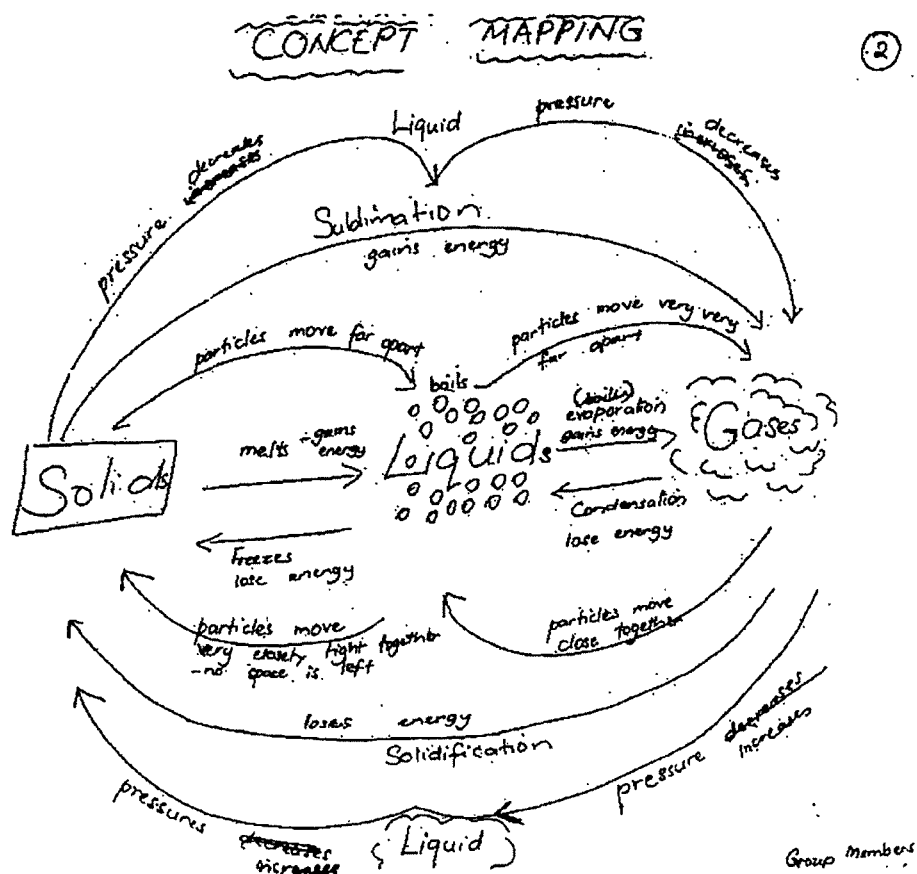 CONCEPT MAPPING
2
Liquid
pressure
decreases
increases
pressure
decreases
increases
Sublimation
gains energy
particles move far apart
particles move very very
far apart
boils
(boils)
evaporation
gains energy
Gases
melts - gains
energy
Liquids
Solids
Condensation
lose energy
Freezes
lose energy
particles move
very closely tight together
- no space is left
particles move
close together
loses energy
Solidification
pressure decreases
increases
pressures
decreases
increases
Liquid
Group Members